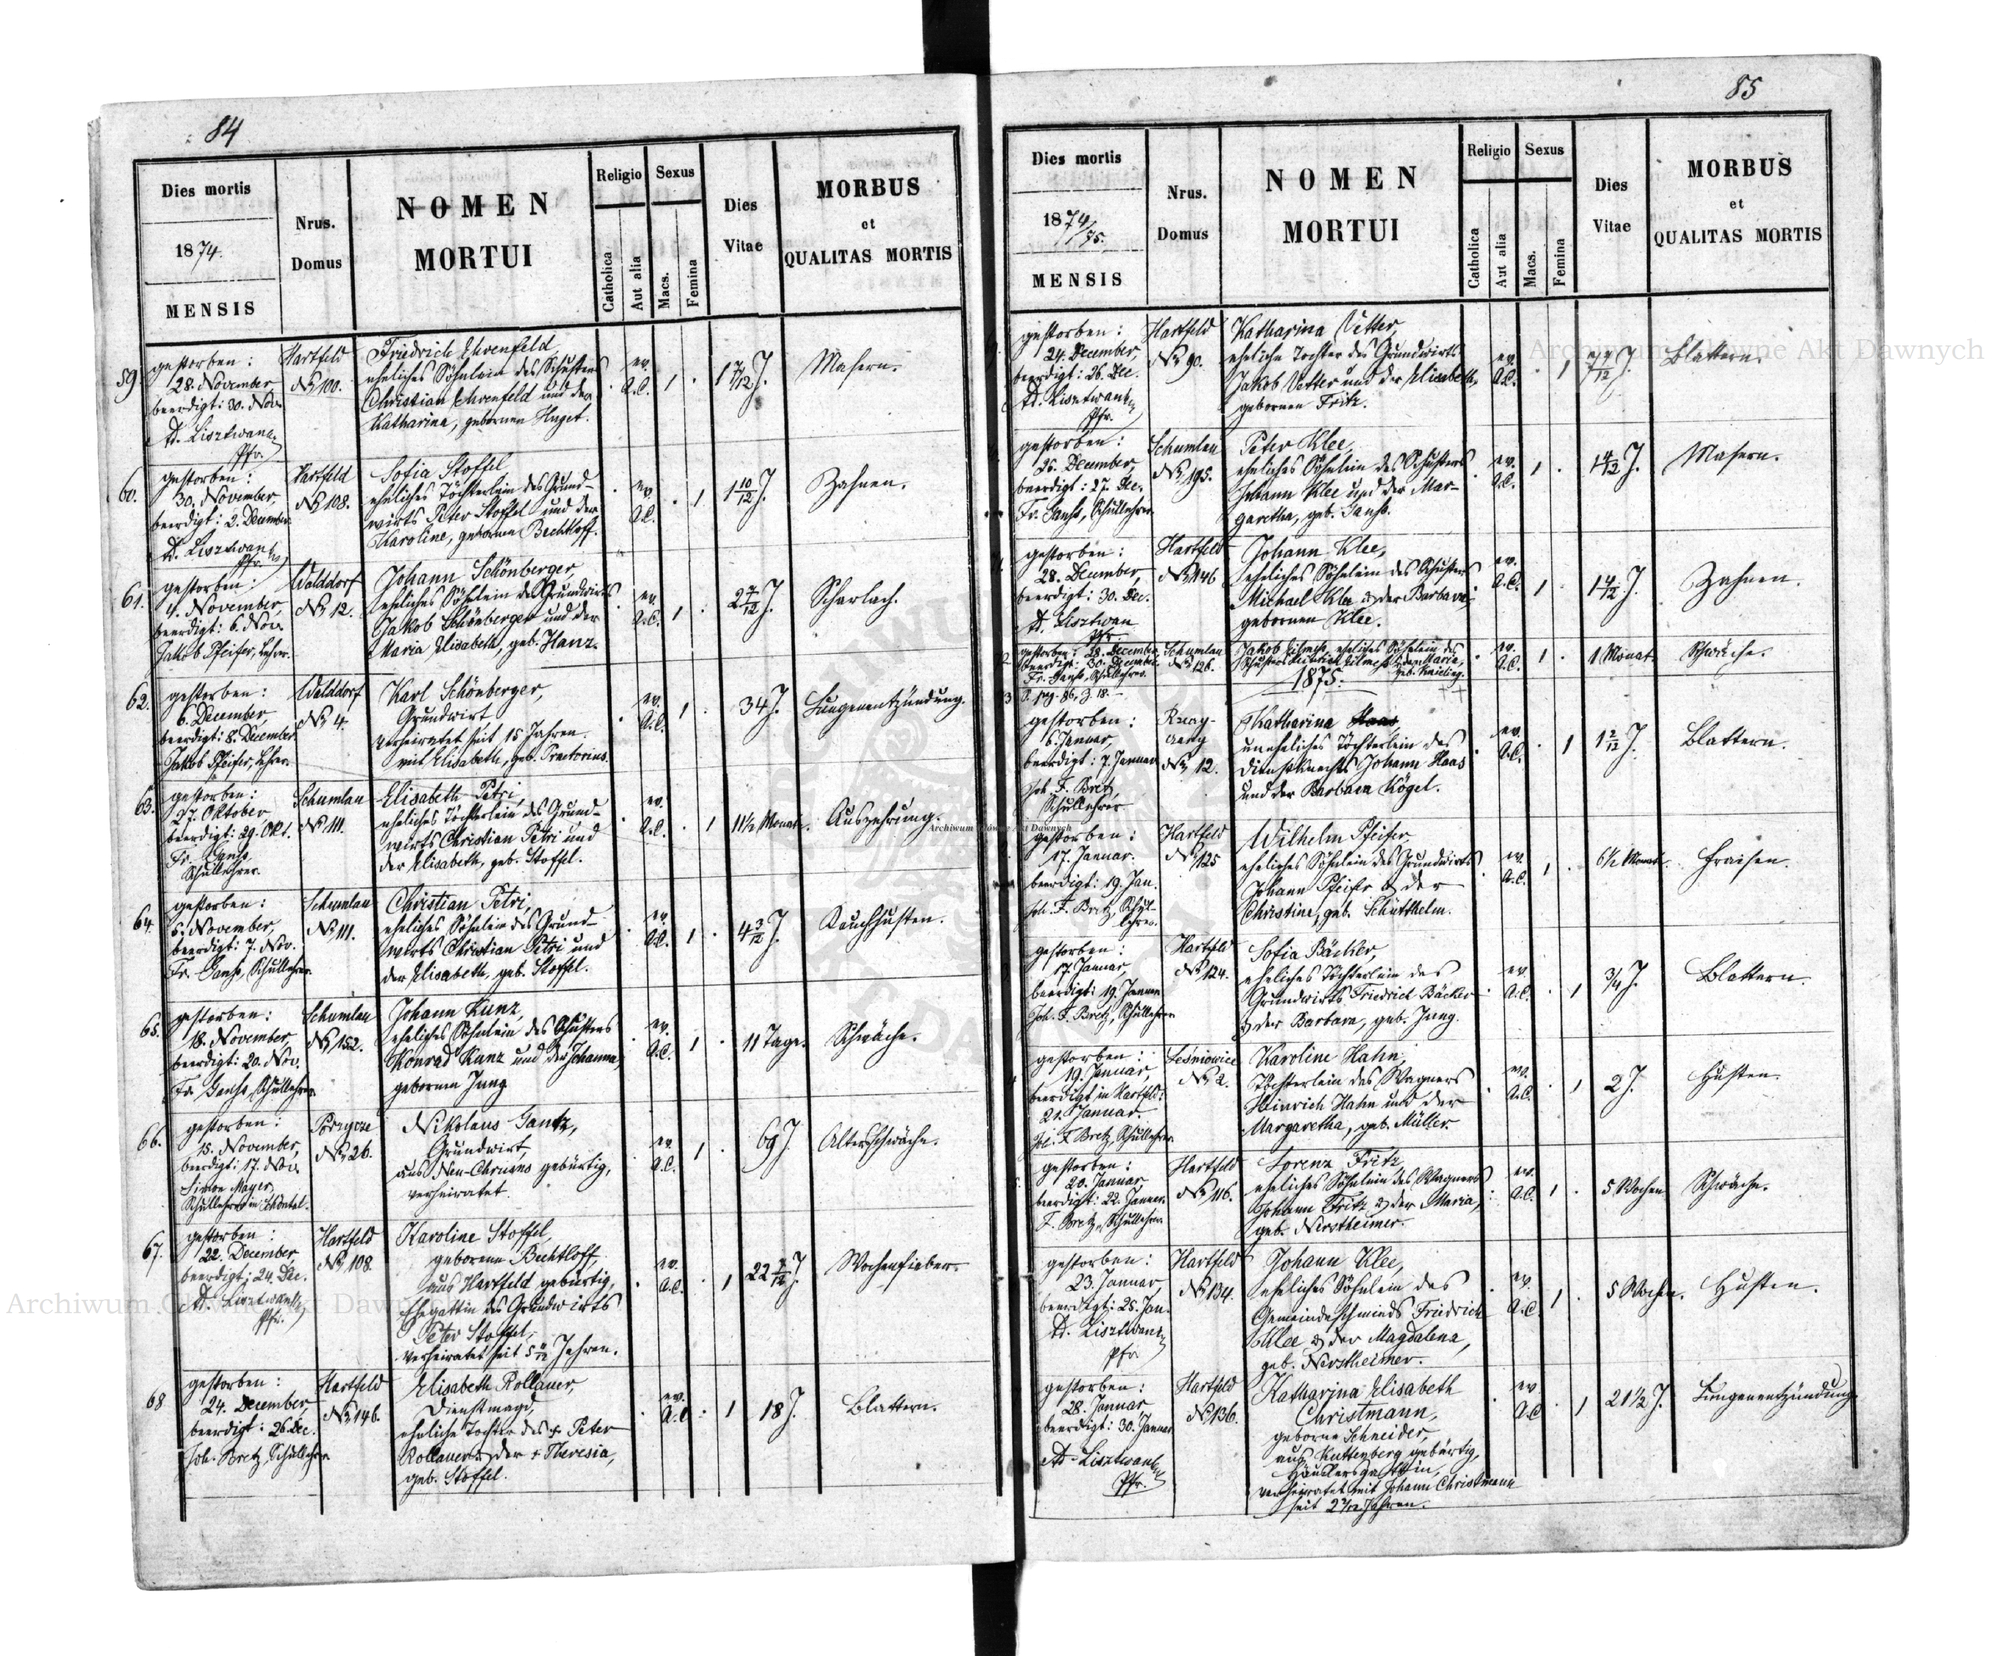 84
Dies mortis
1874.
MENSIS
Nrus.
Domus
NOMEN
MORTUI
Religio
Catholica
Aut alia
Sexus
Macs.
Femina
Dies
Vitae
MORBUS
et
QUALITAS MORTIS
59.
gestorben:
28. November
beerdigt: 30. Nov.
Pfr.
Hartfeld
No 100.
Friedrich Ehrenfeld
eheliches Söhnlein des Schusters
Christian Ehrenfeld und der
Katharina, gebornen Huget.
ev.
A.C.
1
Masern.
60.
gestorben:
30. November,
beerdigt: 2. December
Pfr.
Hartfeld
No 108.
Sofia Stoffel
eheliches Töchterlein des Grund-
wirts Peter Stoffel und der
Karoline, gebornen Bechtloff.
ev.
A.C.
1
1 10/12 J.
Zahnen.
61.
gestorben:
4. November,
beerdigt: 6. Nov.
Jakob Pfeifer, Lehrer.
Walddorf
No 12.
Johann Schönberger
eheliches Söhnlein des Grundwirts
Jakob Schönberger und der
Maria Elisabeth, geb. Hanz.
ev.
A.C.
1
Scharlach.
62.
gestorben:
6. December,
beerdigt: 8. December
Jakob Pfeifer, Lehrer.
Walddorf
No 4.
Karl Schönberger,
Grundwirt
verheiratet seit 15 Jahren.
mit Elisabeth, geb. Praetorius.
ev.
A.C.
1
34 J.
Lungenentzündung.
63.
gestorben:
27. Oktober
beerdigt: 29. Okt.
Schullehrer.
Schumlau
No 111.
Elisabeth Petri,
eheliches Töchterlein des Grund-
wirts Christian Petri und
der Elisabeth, geb. Stoffel.
ev.
A.C.
1
11 1/2 Monate.
Auszehrung.
64.
gestorben:
5. November,
beerdigt: 7. Nov.
Schumlau
No 111.
Christian Petri,
eheliches Söhnlein des Grund-
wirts Christian Petri und
der Elisabeth, geb. Stoffel.
ev.
A.C.
1
4 3/12 J.
Keuchhusten.
65.
gestorben:
18. November,
beerdigt: 20. Nov.
Schumlau
No 152.
Johann Kunz,
eheliches Söhnlein des Schusters
Konrad Kunz und der Johanna,
gebornen Jung
ev.
A.C.
1
11 Tage.
Schwäche.
66.
gestorben:
15. November,
beerdigt: 17. Nov.
Simon Mayer,
Porzycze
No 26.
Nikolaus Gantz,
Grundwirt,
aus Neu-Chrusno gebürtig,
verheiratet.
ev.
A.C.
1
69 J.
Altersschwäche.
67.
gestorben:
22. December
beerdigt: 24. Dec.
Pfr.
Hartfeld
No 108
Karoline Stoffel,
geborene Bechtloff,
aus Hartfeld gebürtig,
Ehegattin des Grundwirts
Peter Stoffel,
verheiratet seit 5 11/12 Jahren.
ev.
A.C.
1
Wochenfieber.
68
gestorben:
24. December
beerdigt: 26. Dec.
Joh. Bretz, Schullehrer
Hartfeld
No 146.
Elisabeth Rollauer,
Dienstmagd
eheliche Tochter des + Peter
Rollauer & der + Theresia,
geb. Stoffel.
ev.
A.C.
1
18 J.
Blattern.
85
Dies mortis
1874/75.
MENSIS
Nrus.
Domus
NOMEN
MORTUI
Religio
Catholica
Aut alia
Sexus
Macs.
Femina
Dies
Vitae
MORBUS
et
QUALITAS MORTIS
gestorben:
24. December,
beerdigt: 26. Dec.
Pfr.
Hartfeld
No 90.
Katharina Vetter,
eheliche Tochter des Grundwirts
Jakob Vetter und der Elisabeth,
gebornen Fritz.
ev.
A.C.
1
Blattern.
gestorben:
beerdigt: 27. Dec.
Schumlau
No 195.
Peter Klee,
eheliches Söhnlein des Schusters
Johann Klee und der Mar-
garetha, geb. Ganß.
ev.
A.C.
1
1 4/12 J.
Masern.
gestorben:
28. December,
beerdigt: 30. Dec.
Pfr.
Hartfeld
No 146
Johann Klee,
eheliches Söhnlein des Schusters
Michael Klee & der Barbara,
gebornen Klee.
ev.
A.C.
1
1 4/12 J.
Zahnen.
gestorben: 28. December,
beerdigt: 30. December.
Schumlau
No 126.
ev.
A.C.
1
1 Monat.
Schwäche.
1875.
gestorben:
5. Januar,
beerdigt: 7. Januar
Joh. F. Bretz,
Schullehrer
No 12.
Katharina
uneheliches Töchterlein des
Dienstknechts Johann Haas
und der Barbara Kögel.
ev.
A.C.
1
1 2/12 J.
Blattern.
gestorben:
17. Januar.
beerdigt: 19. Jan.
Joh. F. Bretz, Schul-
lehrer.
Hartfeld
No 125
Wilhelm Pfeifer,
eheliches Söhnlein des Grundwirts
Johann Pfeifer & der
Christine, geb. Schütthelm.
ev.
A.C.
1
6 1/2 Monat.
Fraisen.
gestorben:
17. Januar,
beerdigt: 19. Januar
Joh. F. Bretz, Schullehrer
Hartfeld
No 124.
Sofia Bäcker,
eheliches Töchterlein des
Grundwirts Friedrich Bäcker
& der Barbara, geb. Jung.
ev.
A.C.
1
3/4 J.
Blattern.
gestorben:
19. Januar
beerdigt in Hartfeld:
21. Januar.
Joh. F. Bretz, Schullehrer
Leśniowice
No 2.
Karoline Hahn,
Töchterlein des Wagners
Heinrich Hahn und der
Margaretha, geb. Müller.
ev.
A.C.
1
2 J.
Husten.
gestorben:
20. Januar
beerdigt: 22. Januar.
F. Bretz, Schullehrer
Hartfeld
No 116.
Lorenz Fritz
eheliches Söhnlein des Wagners
Johann Fritz & der Maria,
geb. Nirstheimer.
ev.
A.C.
1
5 Wochen
Schwäche.
gestorben:
23. Januar
beerdigt: 25. Jan.
Pfr.
Hartfeld
No 134.
Johann Klee,
eheliches Söhnlein des
Gemeindeschmieds Friedrich
Klee & der Magdalena,
geb. Nirstheimer.
ev.
A.C.
1
5 Wochen.
Husten.
gestorben:
28. Januar
beerdigt: 30. Januar
Pfr.
Hartfeld
No 136.
Katharina Elisabeth
Christmann,
geborne Schneider,
aus Kuttenberg gebürtig,
Häuslersgattin,
verheiratet mit Johann Christmann
seit 2 9/12 Jahren.
ev.
A.C.
1
21 1/2 J.
Lungenentzündung.
Archiwum Główne Akt Dawnych